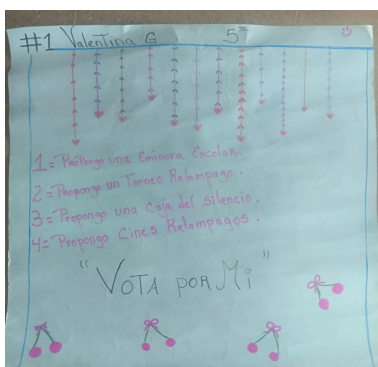 #1 Valentina G 5
1= Propongo una Emisora Escolar.
2= Propongo un Torneo Relampago.
3= Propongo una Caja del Silencio.
4= Propongo Cines Relampagos.
"VOTA POR Mi"